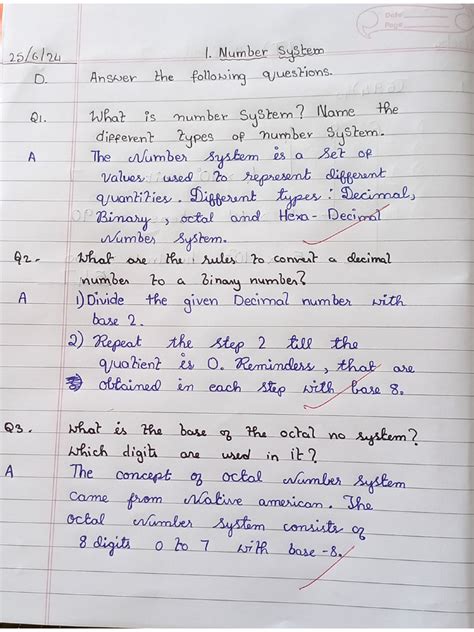 Date
Page
25/6/24
1. Number System
D. Answer the following questions.
Q1. What is number System? Name the
different types of number System.
A The Number System is a Set of
values used to represent different
quantities. Different types: Decimal,
Binary, octal and Hexa-Decimal
Number System.
Q2- What are the rules to convert a decimal
number to a binary number?
A 1) Divide the given Decimal number with
base 2.
2) Repeat the step 2 till the
quotient is 0. Reminders, that are
obtained in each step with base 8.
Q3. What is the base of the octal no system?
Which digits are used in it?
A The concept of octal Number System
came from Native american. The
octal Number System consists of
8 digits 0 to 7 with base -8.